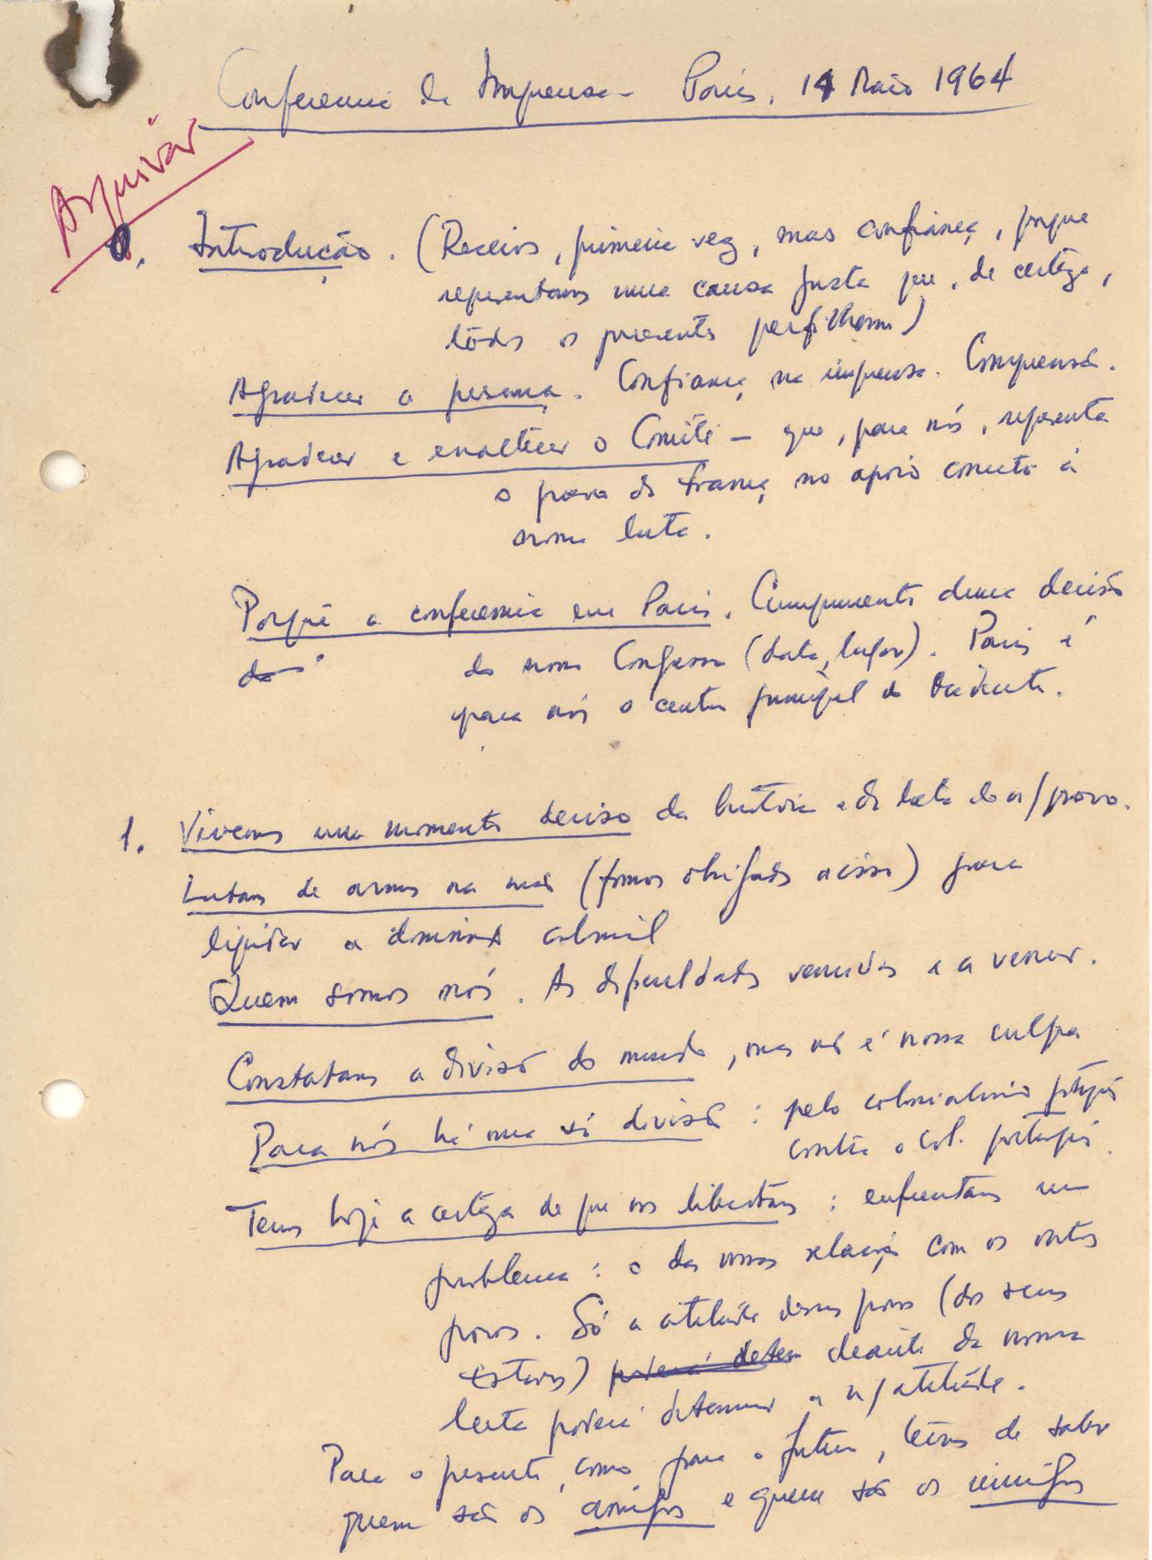 Conferencia de Imprensa - Paris, 14 Maio 1964
Arquivar
0. Introdução. (Receios, primeira vez, mas confiança, porque
representamos uma causa justa que, de certeza,
todos os presentes perfilham)
Agradecer a presença. Confiança na imprensa. Compreensão.
Agradecer e enaltecer o Comité - que, para nós, representa
o povo da França no apoio concreto à
nossa luta.
Porquê a conferencia em Paris. Cumprimento duma decisão
do
do nosso Congresso (data, lugar). Paris é
para nós o centro principal do Ocidente.
1. Vivemos um momento decisivo da historia e da luta do n/povo.
Lutamos de armas na mão (fomos obrigados a isso) para
liquidar a dominação colonial
Quem somos nós. As dificuldades vencidas e a vencer.
Constatamos a divisão do mundo, mas não é nossa culpa
Para nós há uma só divisão: pelo colonialismo português
contra o col. português.
Temos hoje a certeza de que nos libertamos: enfrentamos um
problema: o das nossas relações com os outros
povos. Só a atitude desses povos (dos seus
Estados) poderá deter deante da nossa
luta poderá determinar a n/atitude.
Para o presente, como para o futuro, temos de saber
quem são os amigos e quem são os inimigos